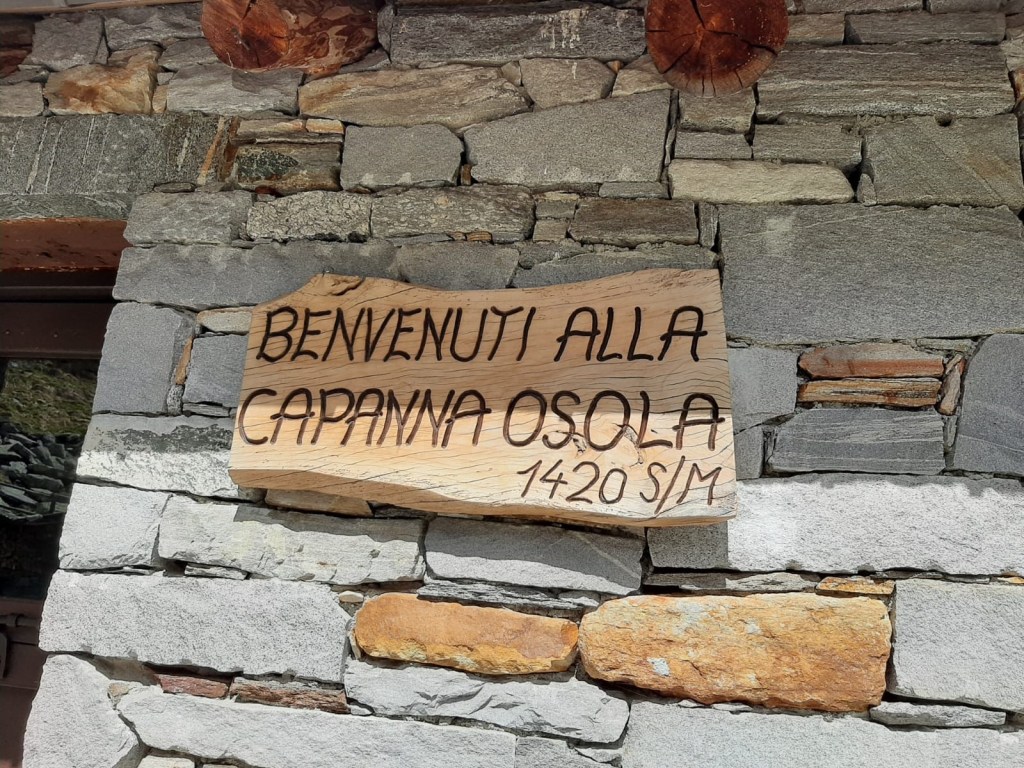 BENVENUTI ALLA
CAPANNA OSOLA
1420 S/M